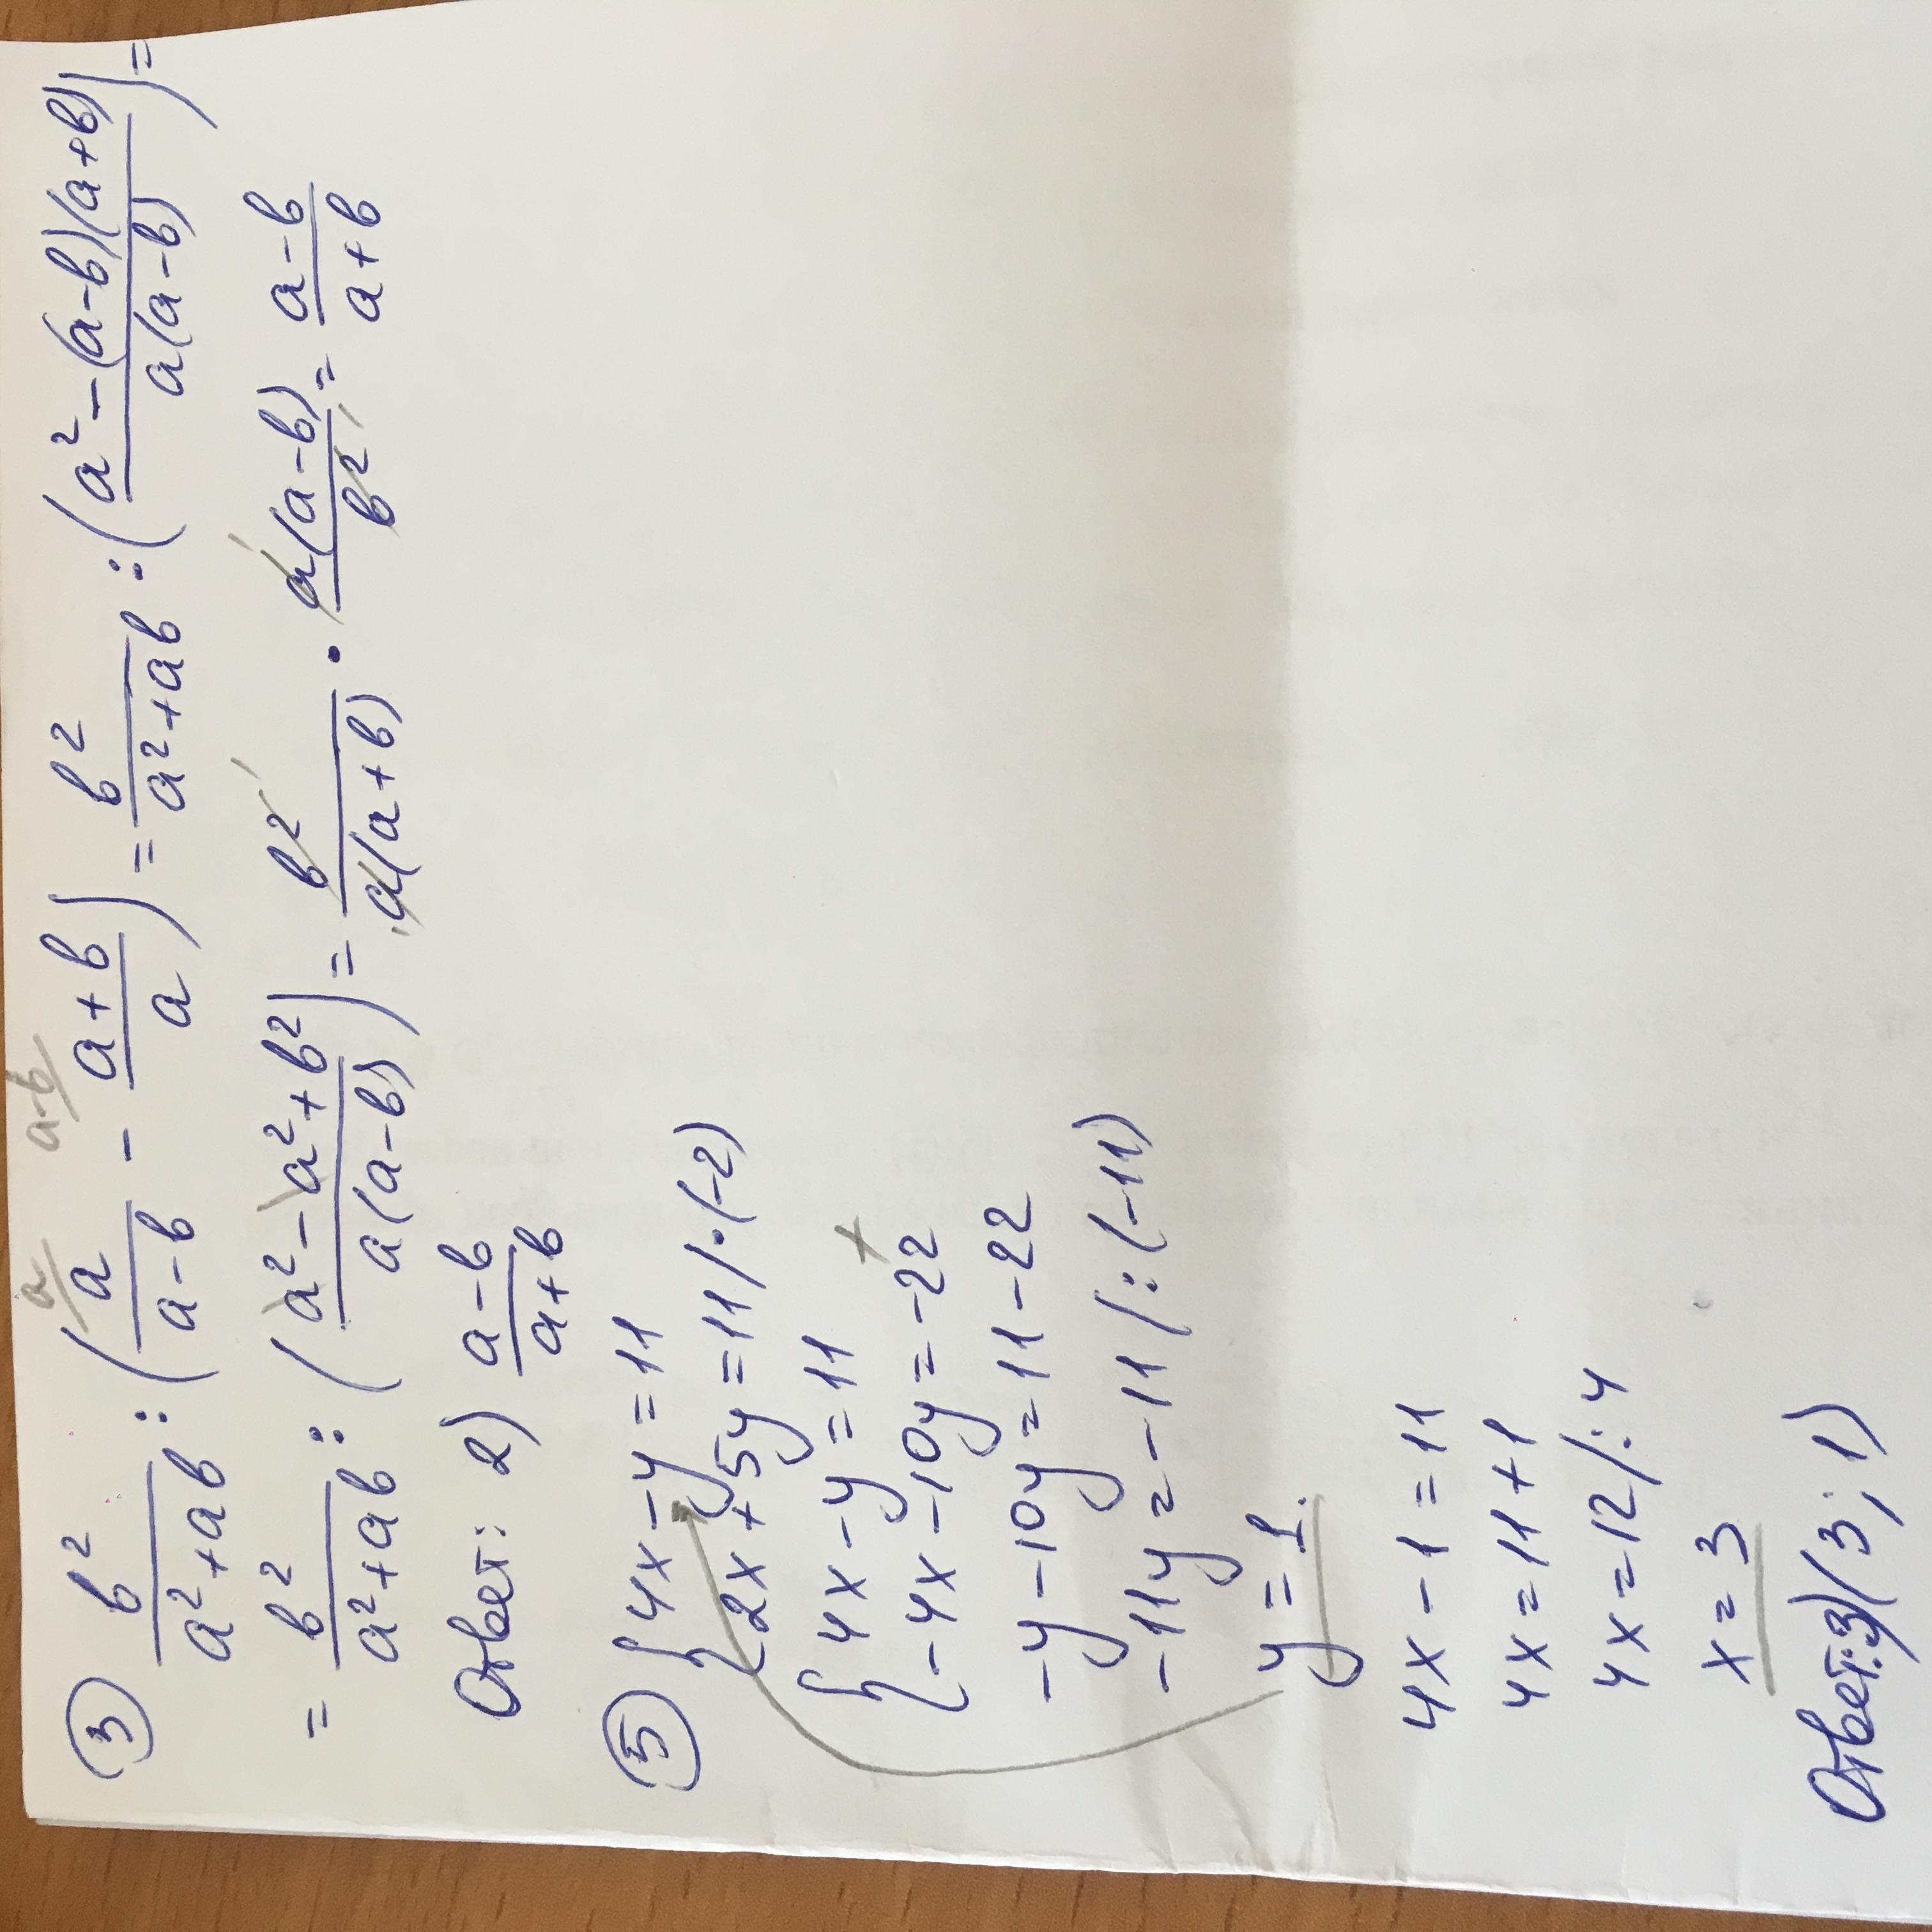 a a-b
③ b²/(a²+ab) : (a/(a-b) - (a+b)/a) = b²/(a²+ab) : ((a²-(a-b)(a+b))/(a(a-b))) =
= b²/(a²+ab) : ((a²-a²+b²)/(a(a-b))) = b²/(a(a+b)) · a(a-b)/b² = (a-b)/(a+b)
Ответ: 2) (a-b)/(a+b)
⑤ { 4x-y=11
2x+5y=11 /·(-2)
{ 4x-y=11
-4x-10y=-22 +
-y-10y=11-22
-11y=-11 /:(-11)
y=1.
4x-1=11
4x=11+1
4x=12/:4
x=3
Ответ:3)(3;1)